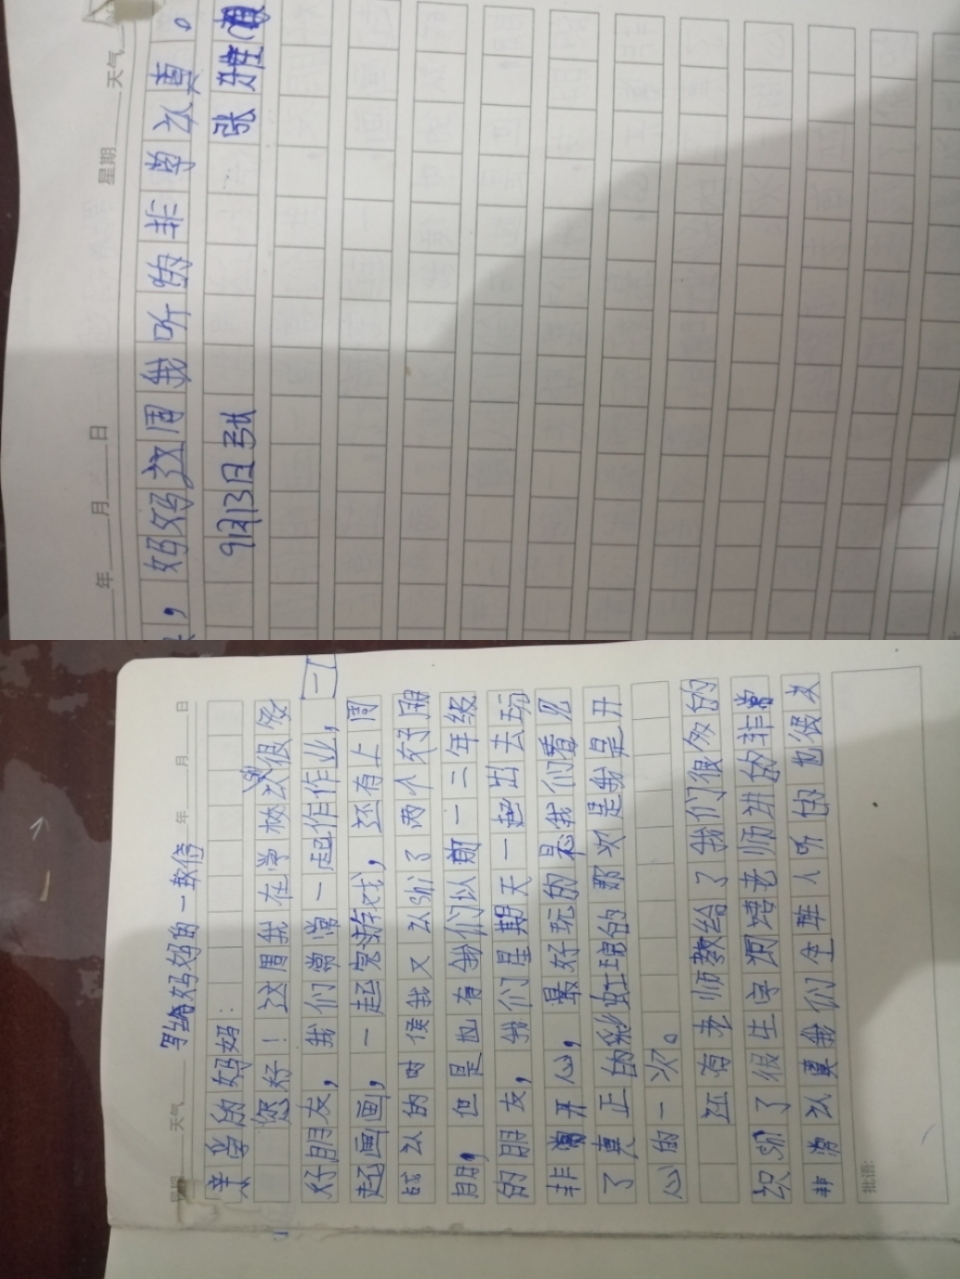 星期 天气 年 月 日
写给妈妈的一封信
亲爱的妈妈:
您好!这周我在学校认很多
好朋友,我们常常一起作作业,一
起画画,一起完游戏,还有上周
的时候我又认识了两个好朋
朋,但是也有我们以前一二年级
的朋友,我们星期天一起出去玩
非常开心,最好玩的是我们看见
了真正的彩虹,现的那次是我是开
心的一次。
还有老师教给了我们很多的
识了很生字老师讲的非常
非常认真我们全班人听的也很认
批语:
年 月 日 星期 天气
,妈妈这周我听的非常认真。
9月13日 张 张雅